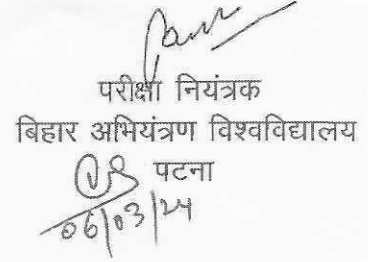 परीक्षा नियंत्रक
बिहार अभियंत्रण विश्वविद्यालय
पटना
06/03/24